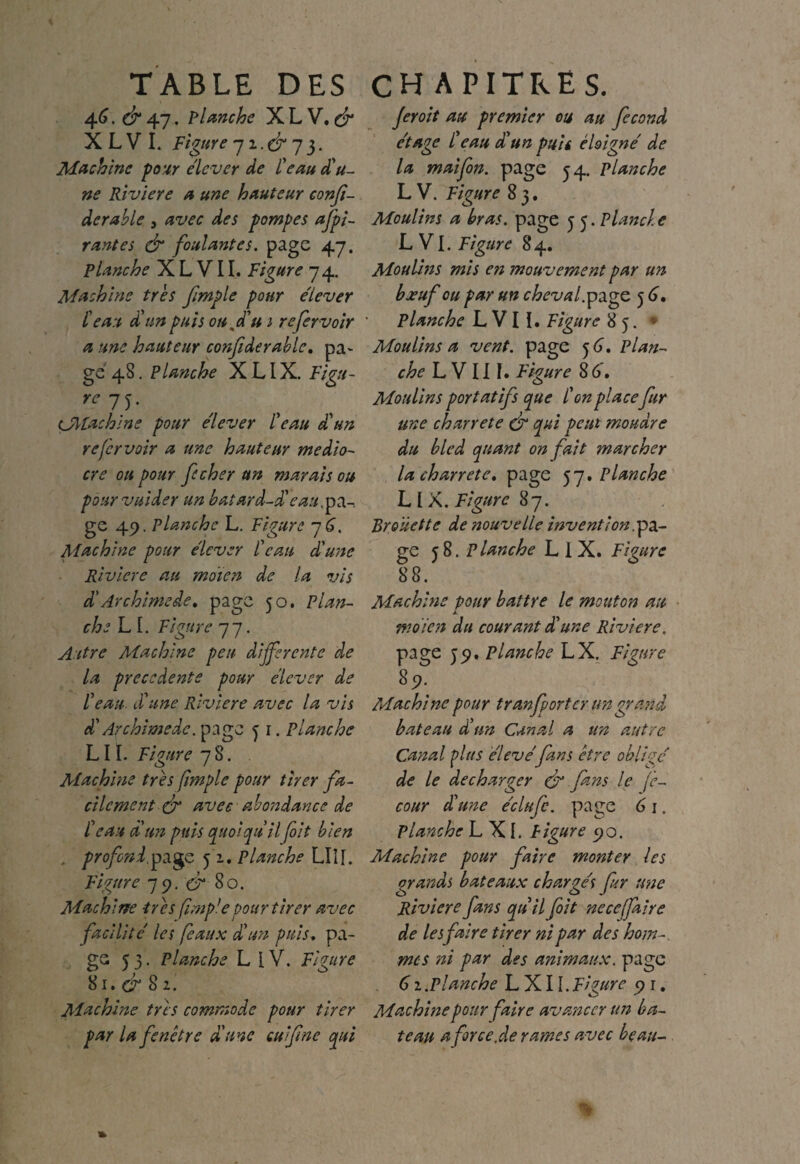 TABLE DES CHAPITRES.
46. & 47. Planche XLV. &
XLVI. Figure 72. & 73.
Machine pour élever de l'eau d'u-
ne Riviere a une hauteur confi-
derable, avec des pompes afpi-
rantes & foulantes. page 47.
Planche XLVII. Figure 74.
Machine très fimple pour élever
l'eau d'un puis ou d'un refervoir
a une hauteur confiderable. pa-
ge 48. Planche XLIX. Figu-
re 75.
Machine pour élever l'eau d'un
refervoir a une hauteur medio-
cre ou pour fecher un marais ou
pour vuider un batard-d'eau. pa-
ge 49. Planche L. Figure 76.
Machine pour élever l'eau d'une
Riviere au moïen de la vis
d'Archimede. page 50. Plan-
che LI. Figure 77.
Autre Machine peu differente de
la precedente pour élever de
l'eau d'une Riviere avec la vis
d'Archimede. page 51. Planche
LII. Figure 78.
Machine très fimple pour tirer fa-
cilement & avec abondance de
l'eau d'un puis quoiqu'il foit bien
profond. page 52. Planche LIII.
Figure 79. & 80.
Machine très fimple pour tirer avec
facilité les feaux d'un puis. pa-
ge 53. Planche LIV. Figure
81. & 82.
Machine très commode pour tirer
par la fenêtre d'une cuifine qui
feroit au premier ou au fecond
étage l'eau d'un puis éloigné de
la maifon. page 54. Planche
LV. Figure 83.
Moulins a bras. page 55. Planche
LVI. Figure 84.
Moulins mis en mouvement par un
bœuf ou par un cheval. page 56.
Planche LVII. Figure 85.
Moulins a vent. page 56. Plan-
che LVIII. Figure 86.
Moulins portatifs que l'on place fur
une charrete & qui peut moudre
du bled quant on fait marcher
la charrete. page 57. Planche
LIX. Figure 87.
Broüette de nouvelle invention. pa-
ge 58. Planche LIX. Figure
88.
Machine pour battre le mouton au
moïen du courant d'une Riviere.
page 59. Planche LX. Figure
89.
Machine pour tranfporter un grand
bateau d'un Canal a un autre
Canal plus élevé fans être obligé
de le decharger & fans le fe-
cour d'une éclufe. page 61.
Planche LXI. Figure 90.
Machine pour faire monter les
grands bateaux chargés fur une
Riviere fans qu'il foit neceffaire
de les faire tirer ni par des hom-
mes ni par des animaux. page
62. Planche LXII. Figure 91.
Machine pour faire avancer un ba-
teau a force de rames avec beau-